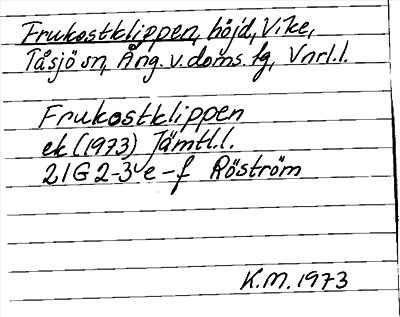 Frukostklippen, höjd, Vike,
Tåsjö sn, Ång. v. doms. fg, Vnrl.l.
Frukostklippen
ek (1973) Jämtl.l.
21G2-3 e-f Röström
K.M. 1973